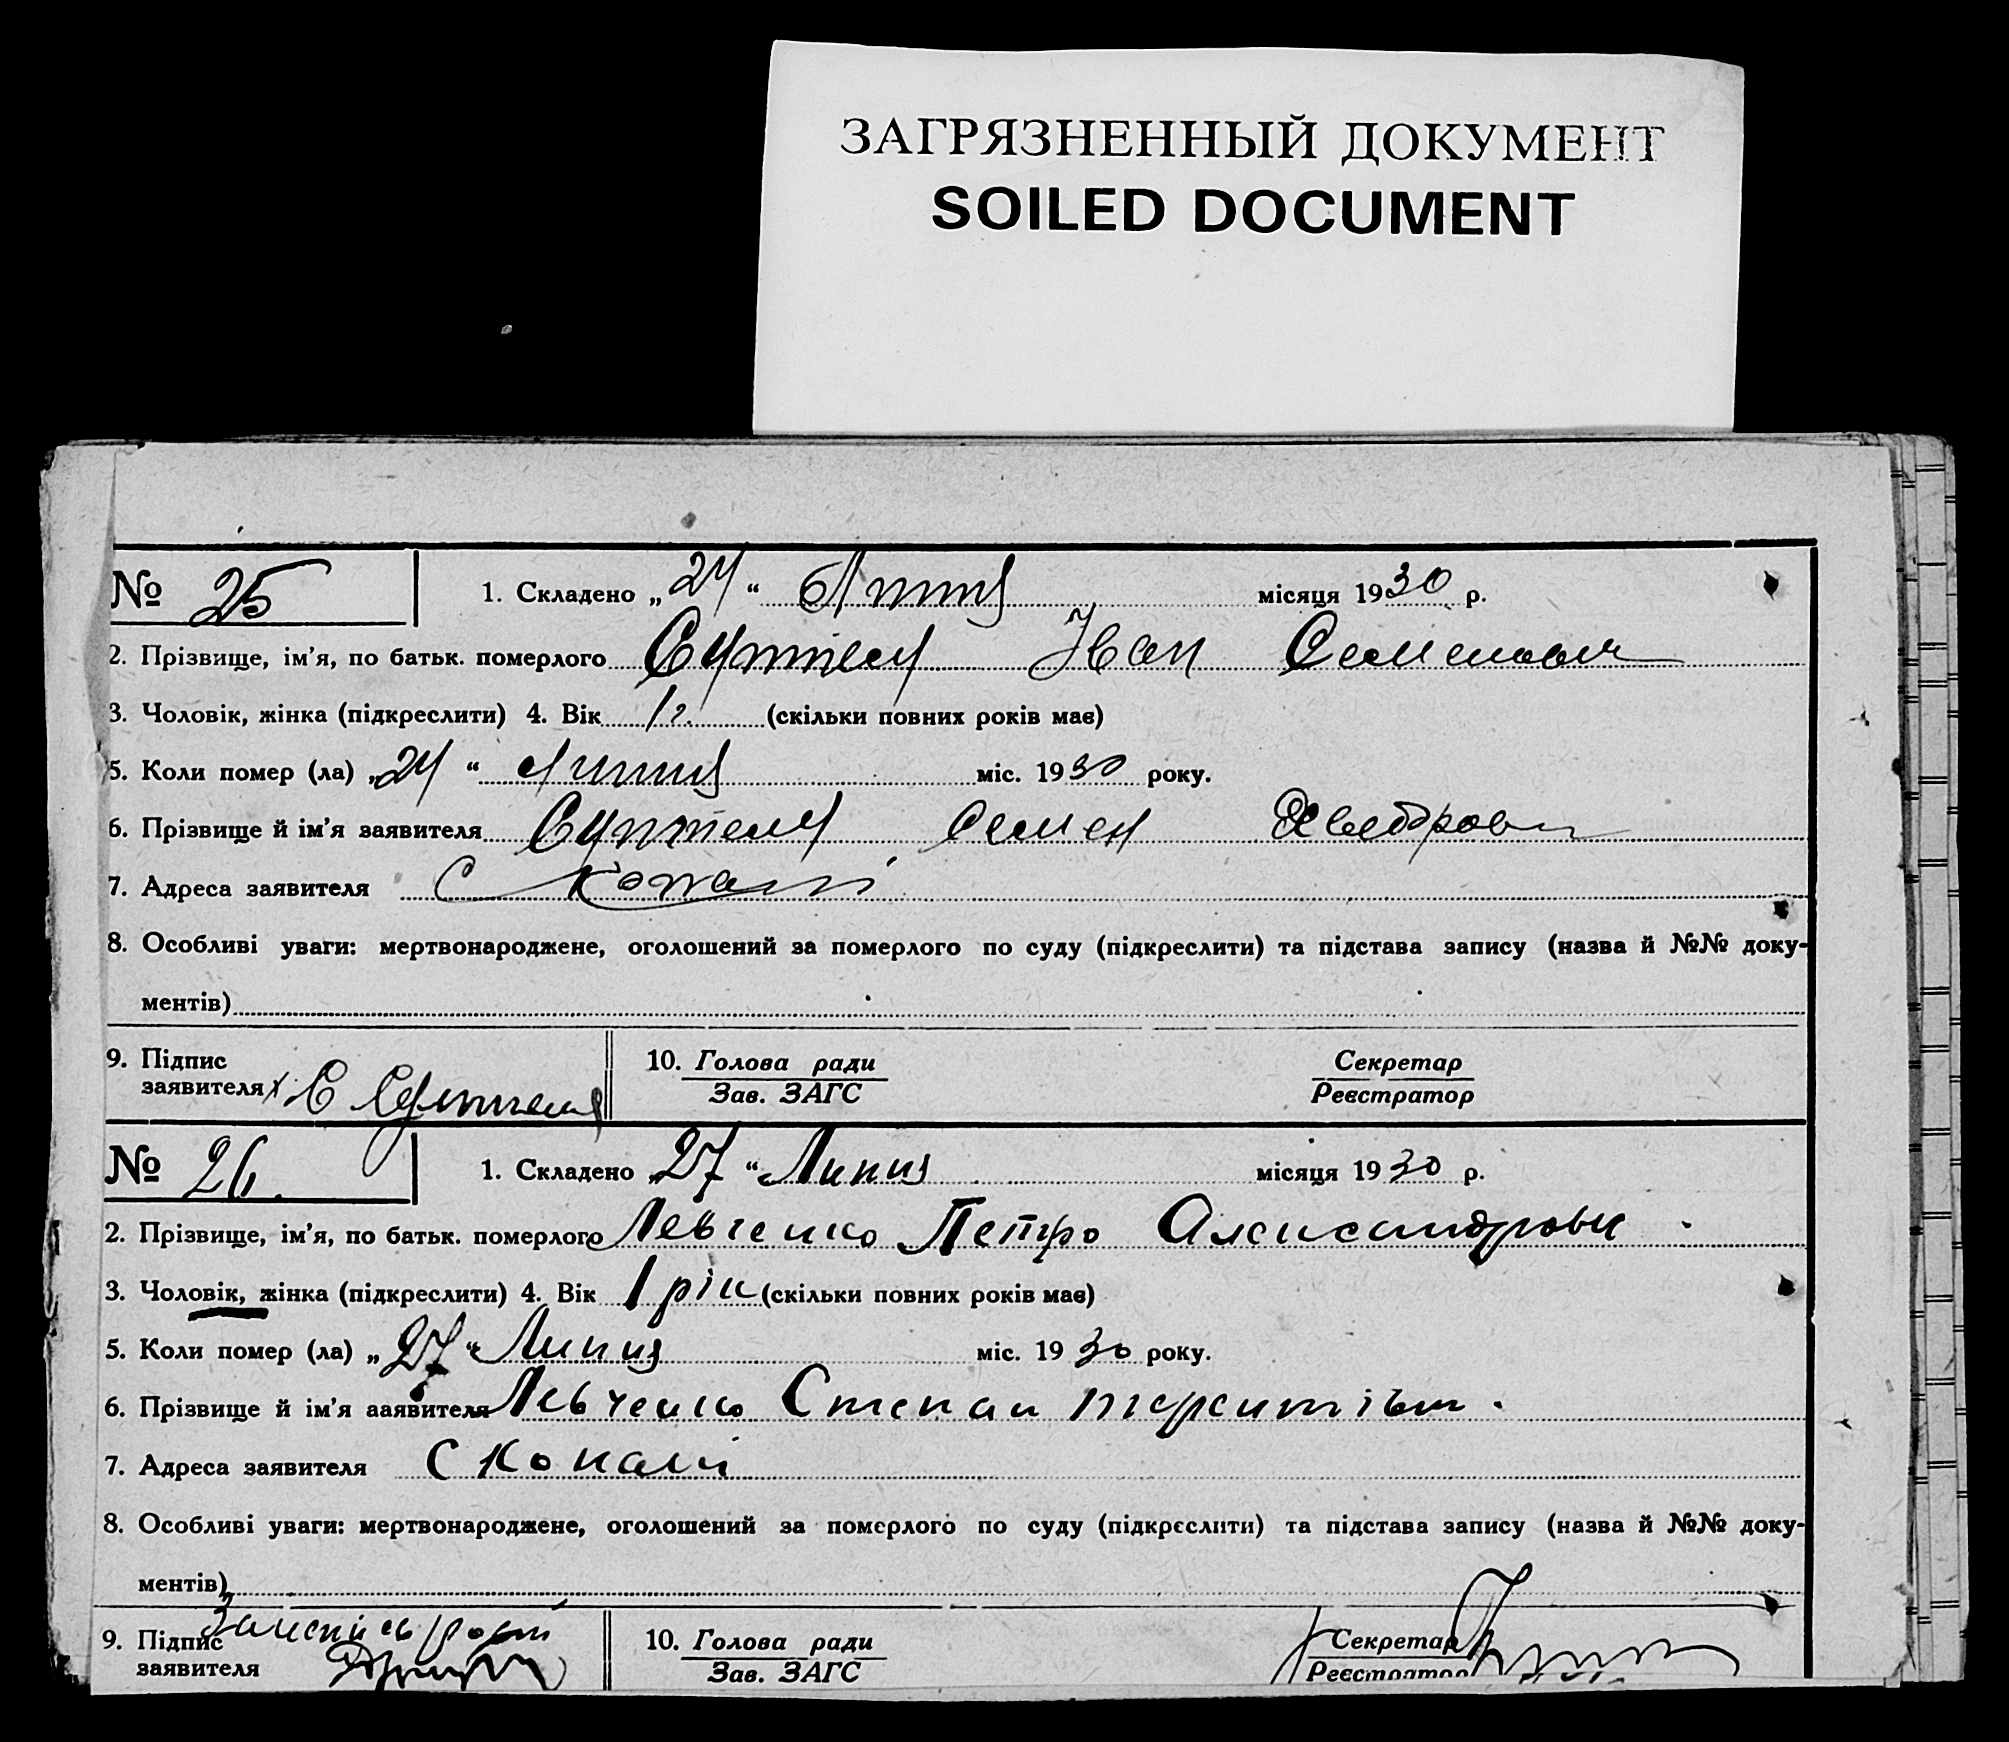 ЗАГРЯЗНЕННЫЙ ДОКУМЕНТ
SOILED DOCUMENT
№ 25 1. Складено „24“ Липня місяця 1930 р.
2. Прізвище, ім'я, по батьк. померлого Іван Семенович
3. Чоловік, жінка (підкреслити) 4. Вік 1 г. (скільки повних років має)
5. Коли помер (ла) „24“ липня міс. 1930 року.
6. Прізвище й ім'я заявителя Семен
7. Адреса заявителя С Копані
8. Особливі уваги: мертвонароджене, оголошений за померлого по суду (підкреслити) та підстава запису (назва й №№ доку-
ментів)
9. Підпис 10. Голова ради Секретар
заявителя С Зав. ЗАГС Реєстратор
№ 26. 1. Складено „27“ Липня місяця 1930 р.
2. Прізвище, ім'я, по батьк. померлого Левченко Петро Александрови
3. Чоловік, жінка (підкреслити) 4. Вік 1 рік (скільки повних років має)
5. Коли помер (ла) „27“ Липня міс. 1930 року.
6. Прізвище й ім'я ааявителя Левченко Степан
7. Адреса заявителя С Копані
8. Особливі уваги: мертвонароджене, оголошений за померлого по суду (підкреслити) та підстава запису (назва й №№ доку-
ментів)
9. Підпис 10. Голова ради Секретар
заявителя Зав. ЗАГС Реєстратор